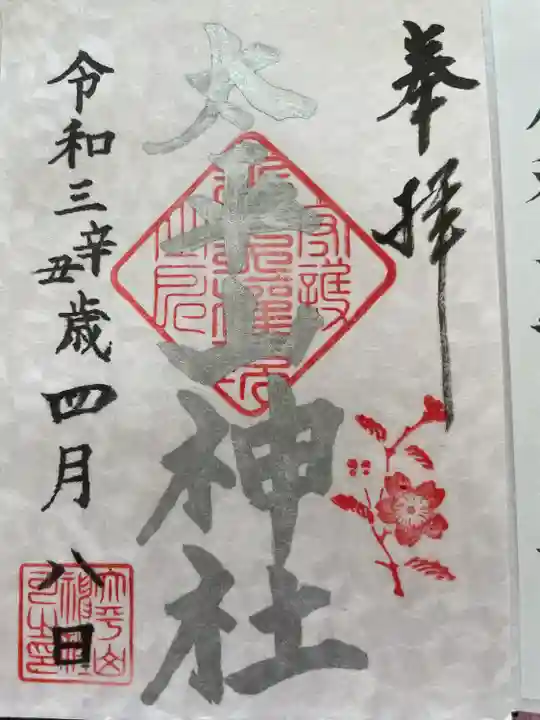 奉拝
太平山神社
令和三辛丑歳四月八日